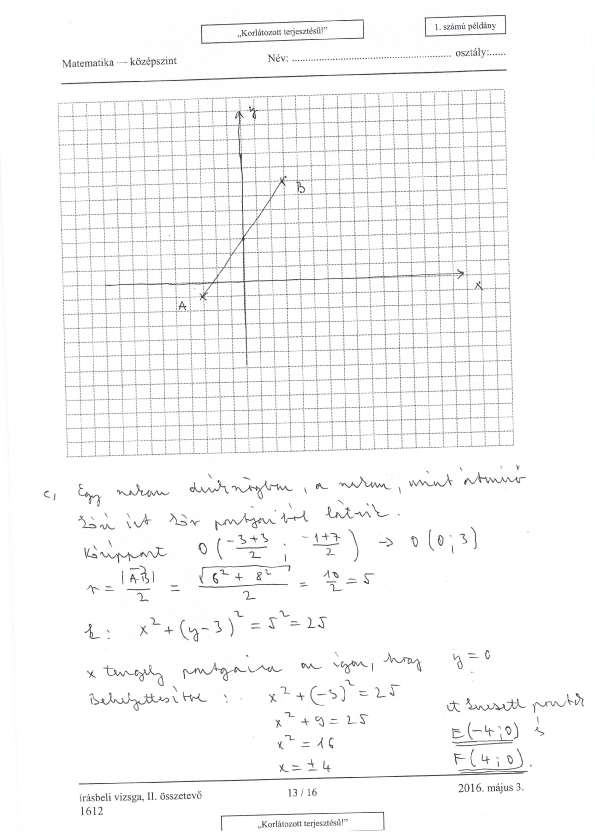 „Korlátozott terjesztésű!”
1. számú példány
Matematika — középszint Név: ........................................................ osztály:......
y
B
A
x
c, Egy szakasz derékszögben, a szakasz, mint átmérő
köré írt kör pontjaiból látszik.
Középpont O(-3+3/2 ; -1+7/2) → O(0;3)
r = |AB|/2 = √(6² + 8²)/2 = 10/2 = 5
k: x² + (y-3)² = 5² = 25
x tengely pontjaira az igaz, hogy y = 0
Behelyettesítve : x² + (-3)² = 25
x² + 9 = 25
x² = 16
x = ± 4
A keresett pontok
E(-4;0) és
F(4;0).
írásbeli vizsga, II. összetevő 13 / 16 2016. május 3.
1612
„Korlátozott terjesztésű!”